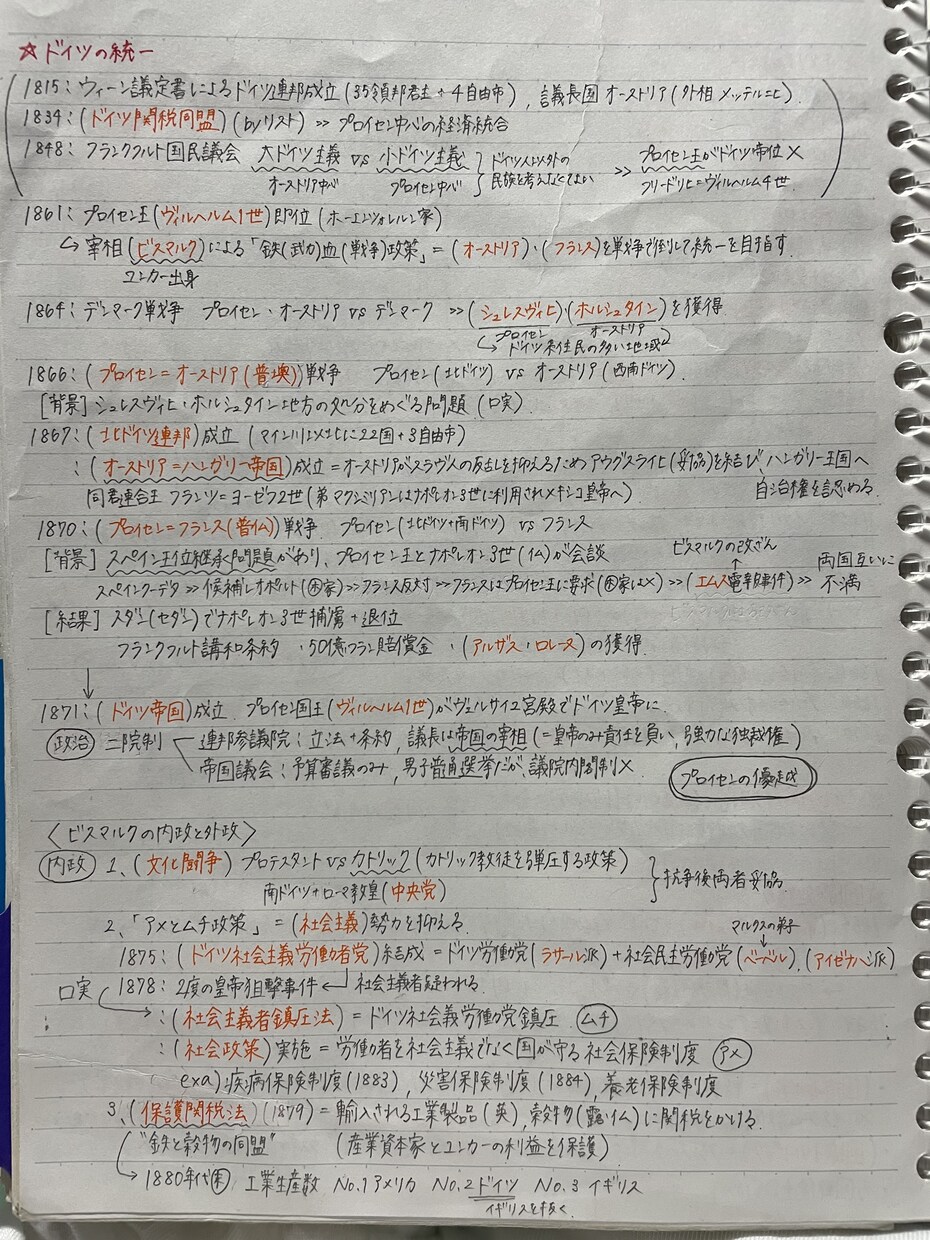 ☆ドイツの統一
1815：ウィーン議定書によるドイツ連邦成立(35領邦君主+4自由市)，議長国オーストリア(外相メッテルニヒ)
1834：(ドイツ関税同盟)(byリスト) >> プロイセン中心の経済統合
1848：フランクフルト国民議会 大ドイツ主義 vs 小ドイツ主義 } ドイツ人以外の民族を考えなくてよい >> プロイセン王がドイツ帝位×
オーストリア中心 プロイセン中心 フリードリヒ=ヴィルヘルム4世
1861：プロイセン王(ヴィルヘルム1世)即位(ホーエンツォレルン家)
↳宰相(ビスマルク)による「鉄(武力)血(戦争)政策」=(オーストリア)・(フランス)を戦争で倒して統一を目指す
ユンカー出身
1864：デンマーク戦争 プロイセン・オーストリア vs デンマーク >> (シュレスヴィヒ)・(ホルシュタイン)を獲得
プロイセン オーストリア
ドイツ系住民の多い地域
1866：(プロイセン=オーストリア(普墺))戦争 プロイセン(北ドイツ) vs オーストリア(西南ドイツ)
[背景] シュレスヴィヒ・ホルシュタイン地方の処分をめぐる問題(口実)
1867：(北ドイツ連邦)成立(マイン川以北に22国+3自由市)
：(オーストリア=ハンガリー帝国)成立=オーストリアがスラヴ人の反乱を抑えるためアウグスライヒ(妥協)を結び，ハンガリー王国へ
同君連合王 フランツ=ヨーゼフ2世(弟マクシミリアンはナポレオン3世に利用されメキシコ皇帝へ) 自治権を認める
1870：(プロイセン=フランス(普仏))戦争 プロイセン(北ドイツ+南ドイツ) vs フランス
[背景] スペイン王位継承問題がおり、プロイセン王とナポレオン3世(仏)が会談 ビスマルクの改ざん
スペインクーデタ >> 候補レオポルト(ホ家) >> フランス反対 >> フランスはプロイセン王に要求(ホ家は×) >> (エムス電報事件) >> 両国互いに不満
[結果] スダン(セダン)でナポレオン3世捕虜+退位
フランクフルト講和条約 ・50億フラン賠償金 ・(アルザス・ロレーヌ)の獲得
↓
1871：(ドイツ帝国)成立 プロイセン国王(ヴィルヘルム1世)がヴェルサイユ宮殿でドイツ皇帝に
政治 二院制 連邦参議院：立法+条約，議長は帝国の宰相(=皇帝のみ責任を負い，強力な独裁権)
帝国議会：予算審議のみ，男子普通選挙だが，議院内閣制×
プロイセンの優越
〈ビスマルクの内政と外政〉
内政 1、(文化闘争) プロテスタント vs カトリック(カトリック教徒を弾圧する政策) } 抗争後両者妥協
南ドイツ+ローマ教皇(中央党)
2、「アメとムチ政策」=(社会主義)勢力を抑える
マルクスの弟子
1875：(ドイツ社会主義労働者党)結成=ドイツ労働党(ラサール派)+社会民主労働党(ベーベル)，(アイゼナハ派)
口実 1878：2度の皇帝狙撃事件 ← 社会主義者疑われる
：(社会主義者鎮圧法)=ドイツ社会義労働党鎮圧 ムチ
：(社会政策)実施=労働者を社会主義でなく国が守る社会保険制度 アメ
exa)疾病保険制度(1883)，災害保険制度(1884)，養老保険制度
3、(保護関税法)(1879)=輸入される工業製品(英)，穀物(露・仏)に関税をかける
"鉄と穀物の同盟" (産業資本家とユンカーの利益を保護)
→1880年代末 工業生産数 No.1アメリカ No.2ドイツ No.3イギリス
イギリスを抜く